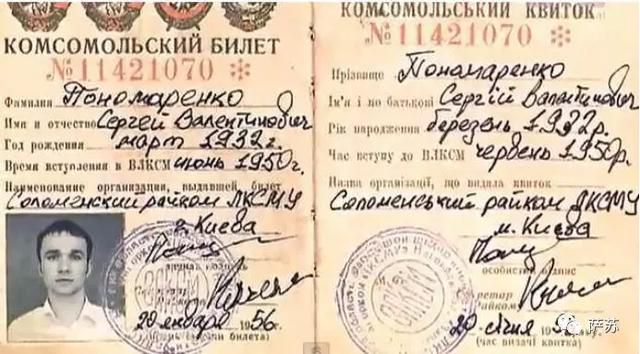 КОМСОМОЛЬСКИЙ БИЛЕТ
№11421070 *
Фамилия Пономаренко
Имя и отчество Сергей Валентинович
Год рождения март 1932 г.
Время вступления в ВЛКСМ июнь 1950 г.
Наименование организации, выдавшей билет
Соломенский райком ЛКСМУ
г. Киева
20 января 1956 г.
КОМСОМОЛЬСЬКИЙ КВИТОК
№11421070 *
Прізвище Пономаренко
Ім'я і по батькові Сергій Валентинович
Рік народження березень 1932 р.
Час вступу до ВЛКСМ червень 1950 р.
Назва організації, що видала квиток
Соломенський райком ЛКСМУ
м. Києва
особистий підпис
20 січня
(час видачі квитка)
萨苏